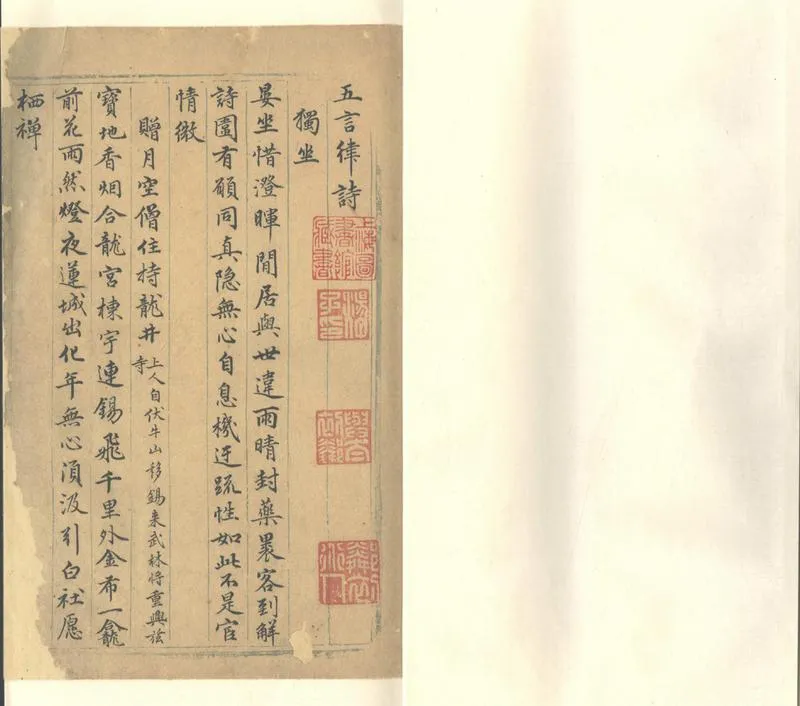 五言律詩
獨坐
晏坐惜澄暉閒居與世違雨晴封藥裹客到解
詩圍有願同真隐無心自息機迂疏性如此不是宦
情微
贈月空僧住持龍井上人自伏牛山移錫來武林将重興玆
寺
寶地香烟合龍宮棟宇連錫飛千里外金布一龕
前花雨然燈夜蓮城出化年無心湏汲引白社愿
栖禅
上海圖
書館
藏書